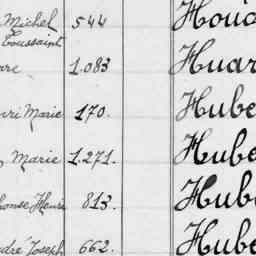 Michel 544 Houd
Toussaint
are 1.083 Huar
nri Marie 170. Hube
Marie 1.271. Hube
phonse Henri 813. Hube
ndré Joseph 662. Hube